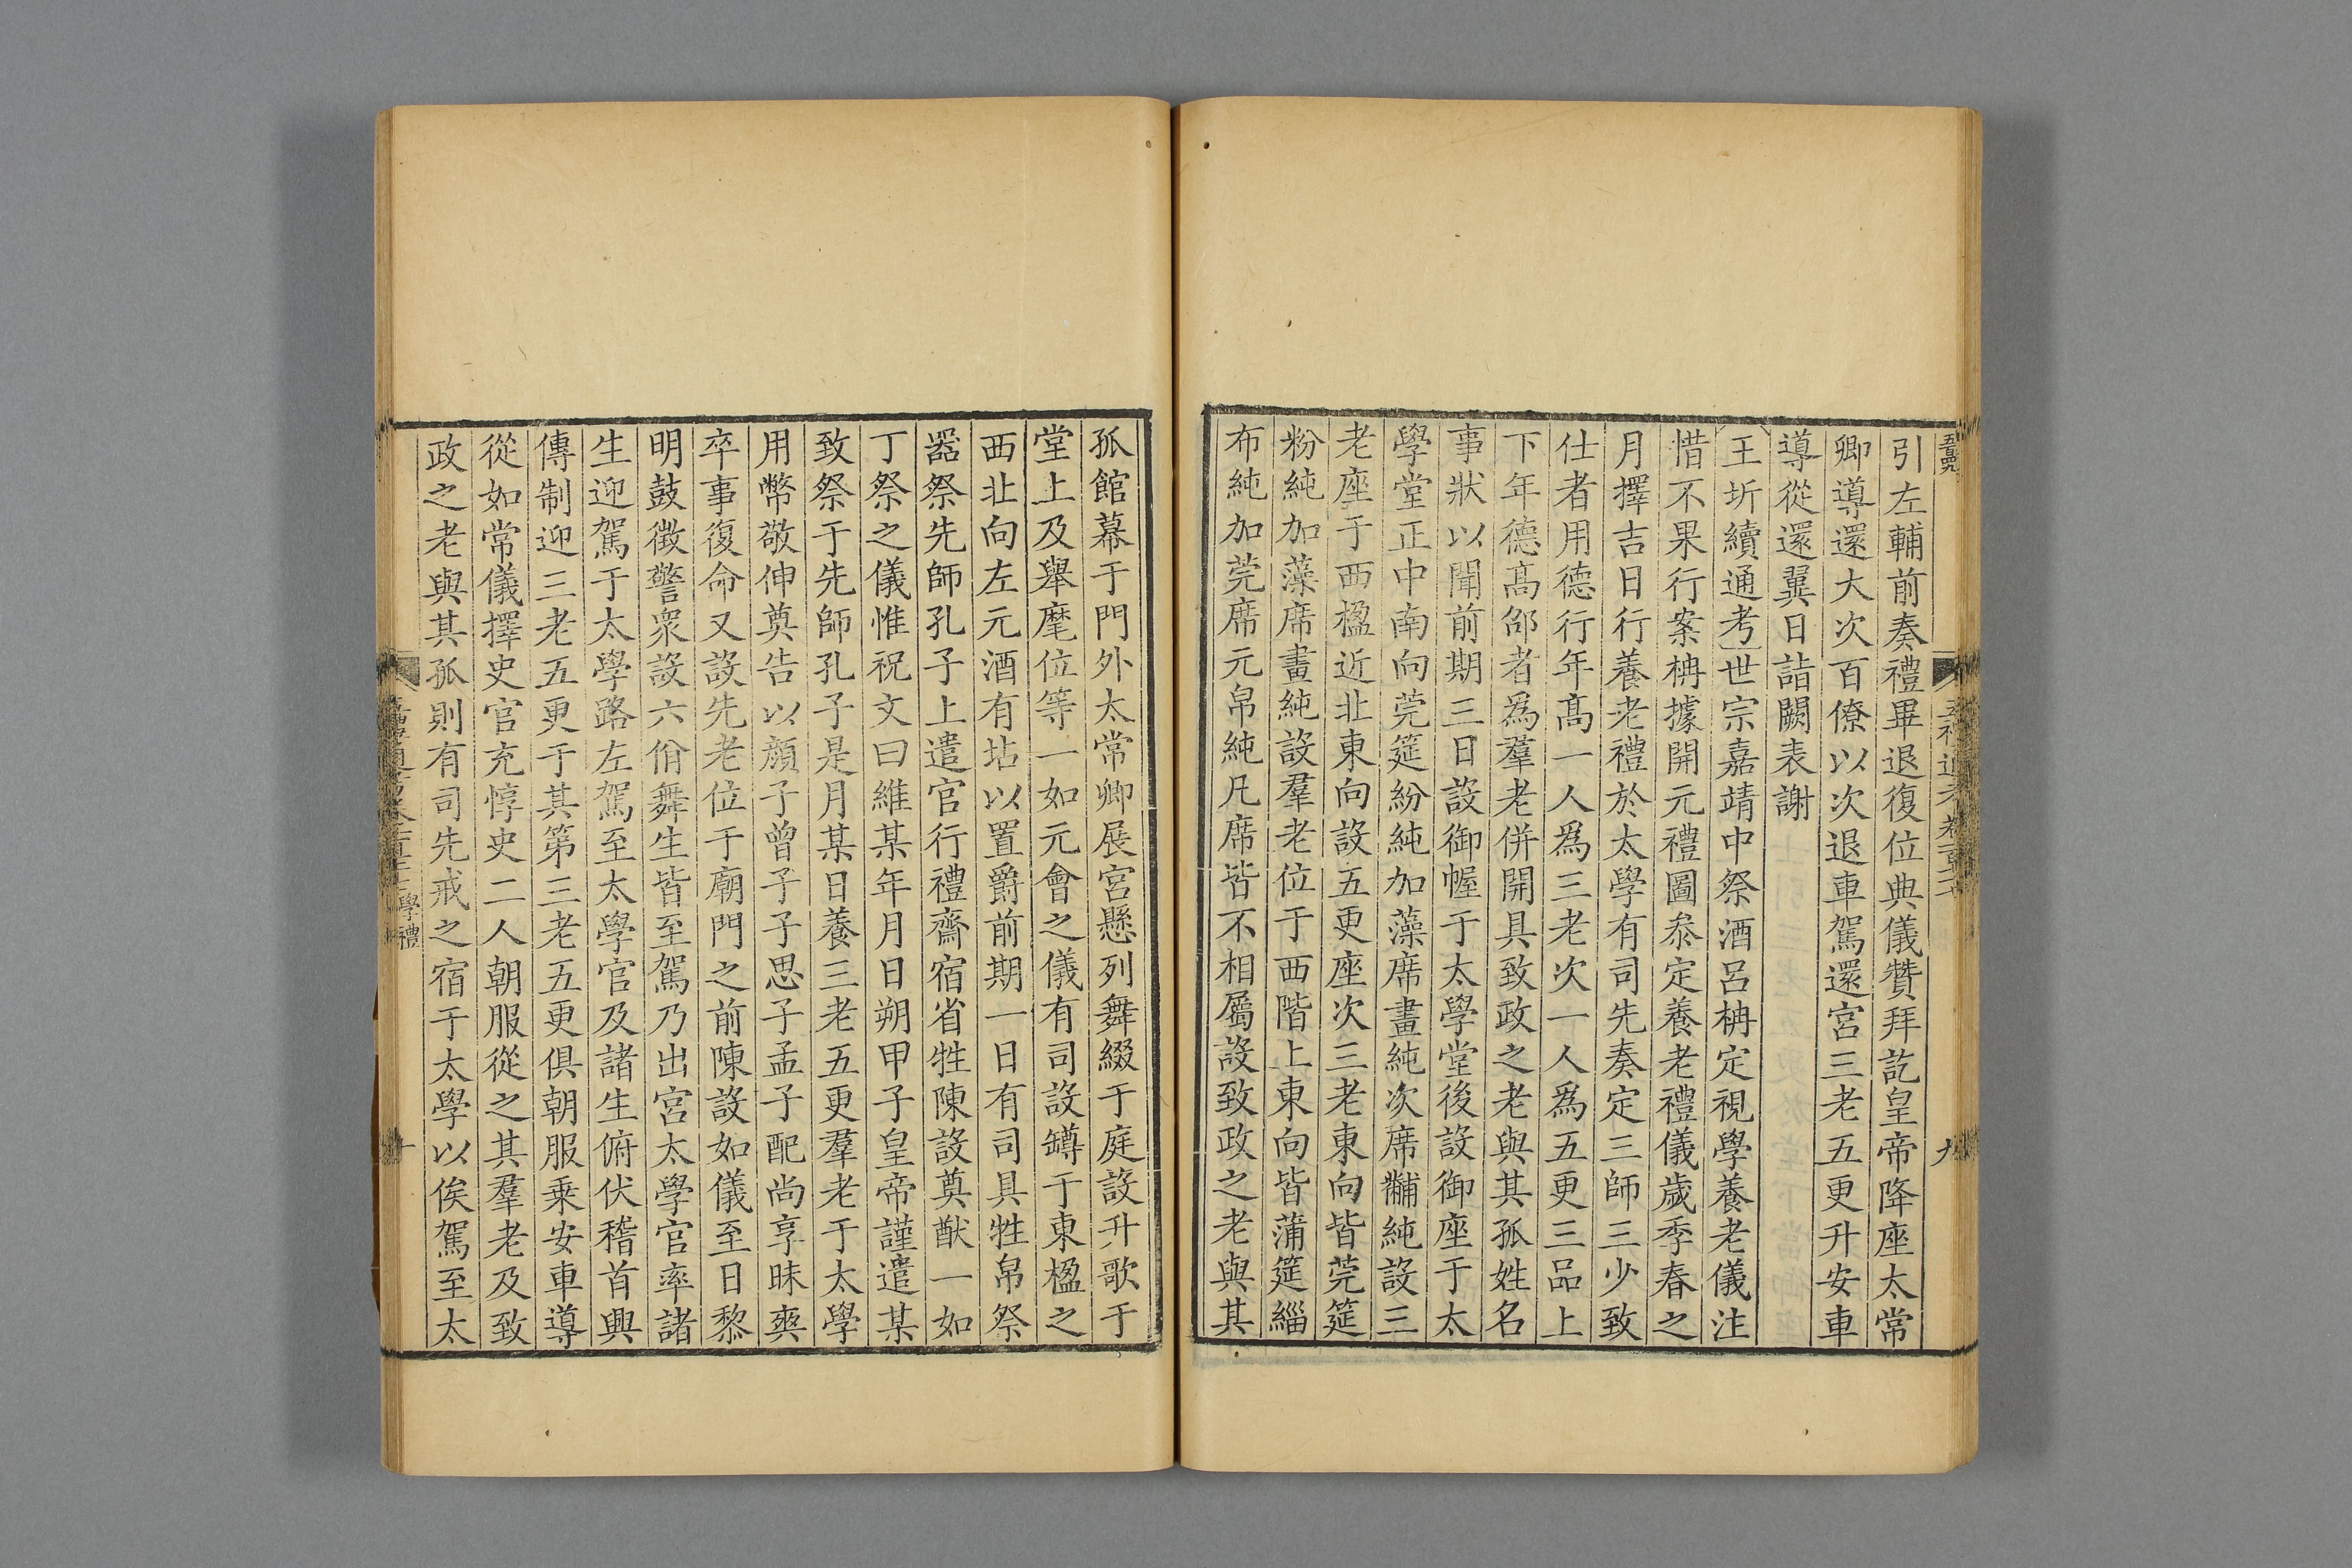 引左輔前奏禮畢退復位典儀贊拜訖皇帝降座太常
卿導還大次百僚以次退車駕還宮三老五更升安車
導從還翼日詣闕表謝
王圻續通考世宗嘉靖中祭酒呂柟定視學養老儀注
惜不果行案柟據開元禮圖叅定養老禮儀歲季春之
月擇吉日行養老禮於太學有司先奏定三師三少致
仕者用德行年髙一人爲三老次一人爲五更三品上
下年德髙邵者爲羣老併開具致政之老與其孤姓名
事狀以聞前期三日設御幄于太學堂後設御座于太
學堂正中南向莞筵紛純加藻席畫純次席黼純設三
老座于西楹近北東向設五更座次三老東向皆莞筵
粉純加藻席畫純設羣老位于西階上東向皆蒲筵緇
布純加莞席元帛純凡席皆不相屬設致政之老與其
孤館幕于門外太常卿展宮懸列舞綴于庭設升歌于
堂上及舉麾位等一如元會之儀有司設罇于東楹之
西北向左元酒有坫以置爵前期一日有司具牲帛祭
器祭先師孔子上遣官行禮齋宿省牲陳設奠獻一如
丁祭之儀惟祝文曰維某年月日朔甲子皇帝謹遣某
致祭于先師孔子是月某日養三老五更羣老于太學
用幣敬伸奠告以顔子曾子子思子孟子配尚享昧爽
卒事復命又設先老位于廟門之前陳設如儀至日黎
明鼓徵警衆設六佾舞生皆至駕乃出宮太學官率諸
生迎駕于太學路左駕至太學官及諸生俯伏稽首興
傳制迎三老五更于其第三老五更俱朝服乘安車導
從如常儀擇史官充惇史二人朝服從之其羣老及致
政之老與其孤則有司先戒之宿于太學以俟駕至太
學禮